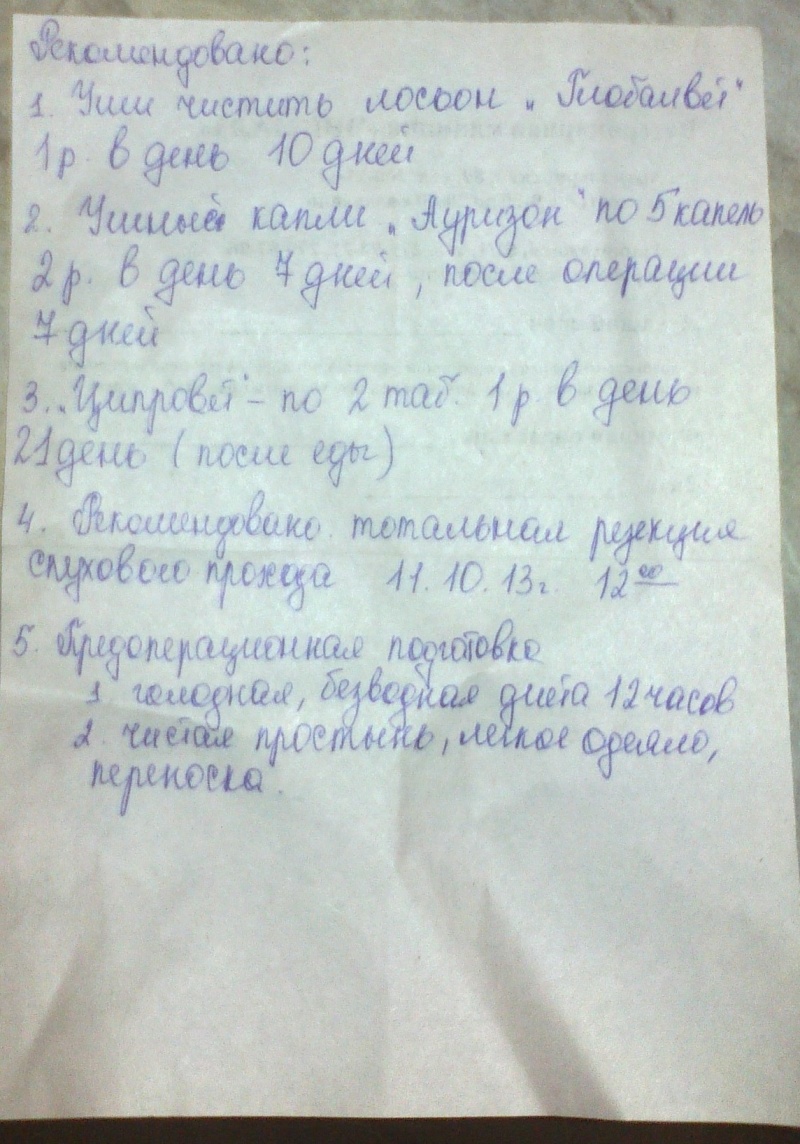 Рекомендовано:
1. Уши чистить лосьон „Глобалвет"
1 р. в день 10 дней
2. Ушные капли „Ауризон" по 5 капель
2 р. в день 7 дней, после операции
7 дней
3. „Ципровет" - по 2 таб. 1 р. в день
21 день (после еды)
4. Рекомендовано тотальная резекция
слухового прохода 11.10.13г. 12⁰⁰
5. Предоперационная подготовка
1. голодная, безводная диета 12 часов
2. чистая простынь, легкое одеяло,
переноска.